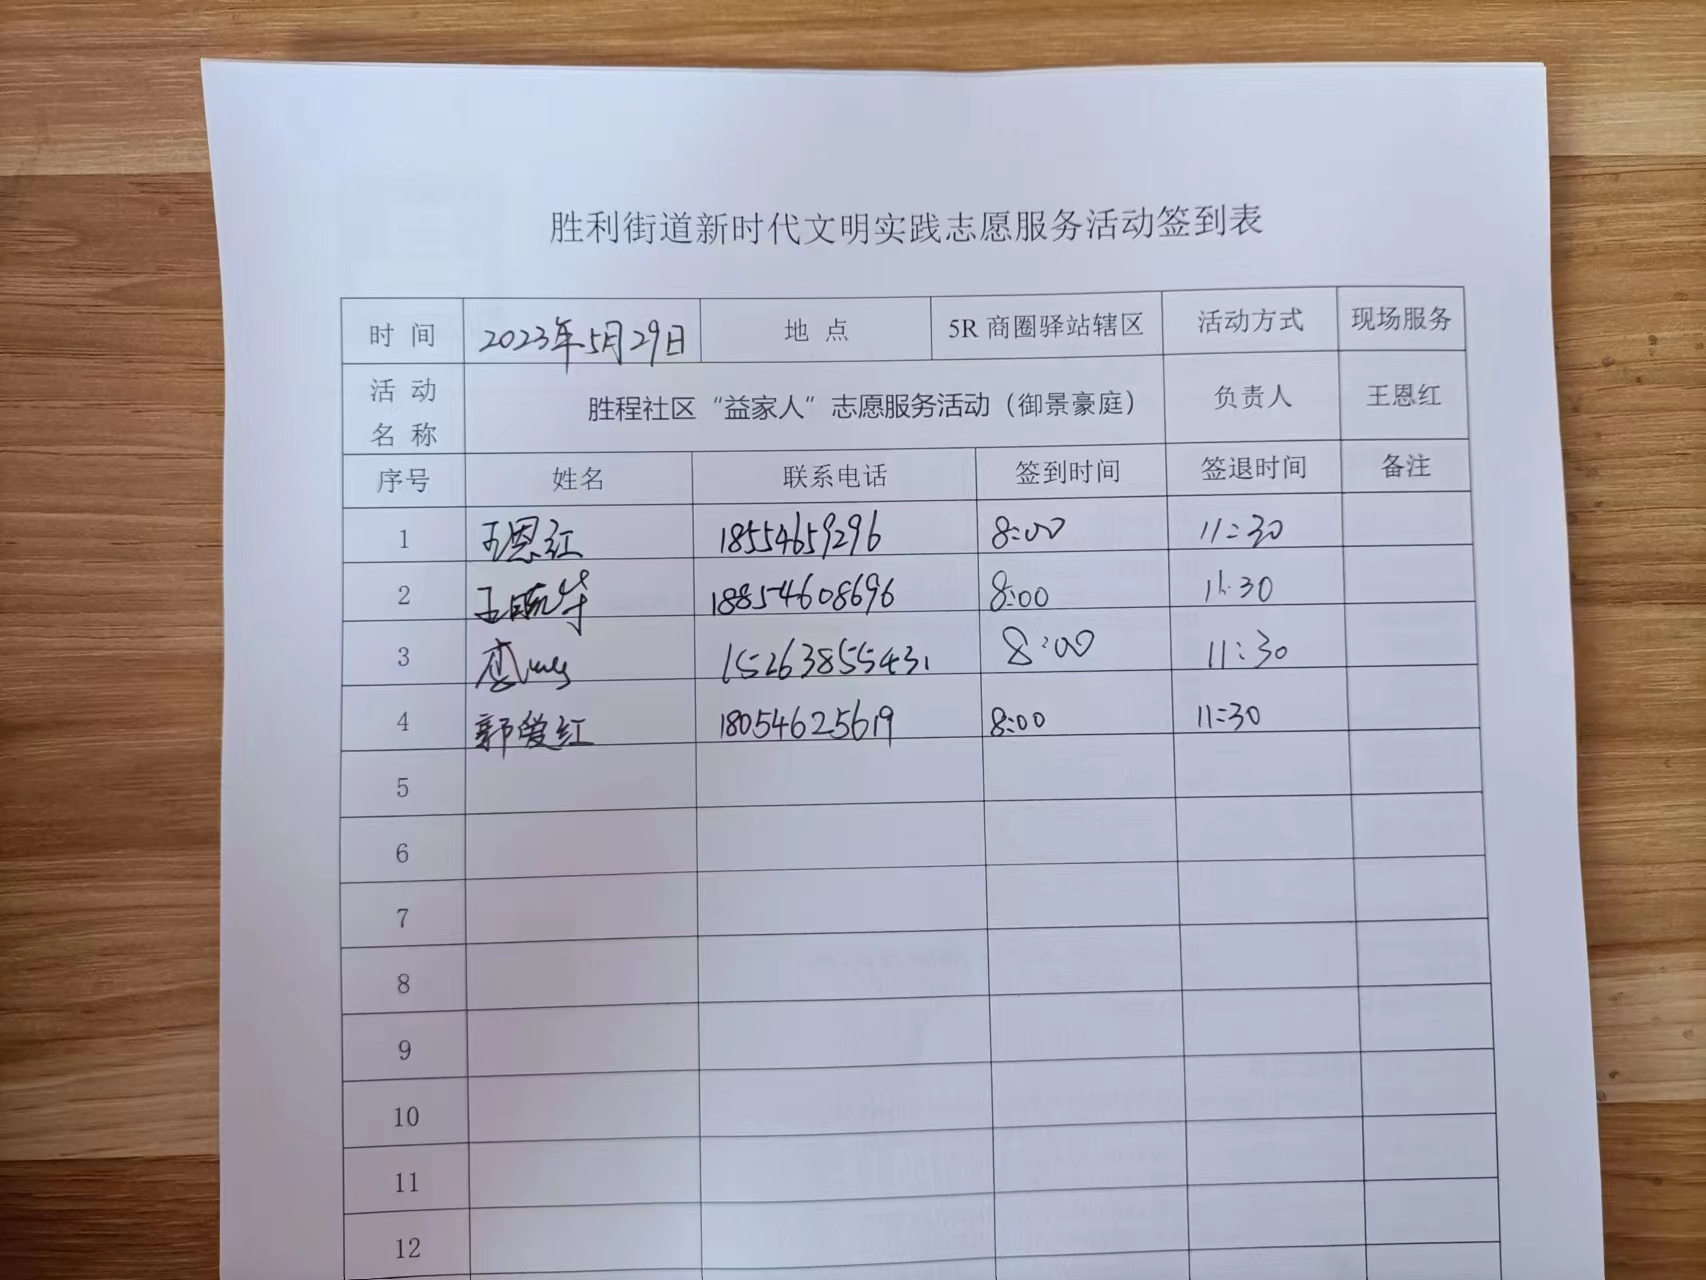 胜利街道新时代文明实践志愿服务活动签到表
时 间 2023年5月29日 地 点 5R 商圈驿站辖区 活动方式 现场服务
活 动 名 称 胜程社区“益家人”志愿服务活动（御景豪庭） 负责人 王恩红
序号 姓名 联系电话 签到时间 签退时间 备注
1 王恩红 18554659296 8:00 11:30
2 王 18854608696 8:00 11:30
3 15263855431 8:00 11:30
4 郭爱红 18054625619 8:00 11:30
5
6
7
8
9
10
11
12